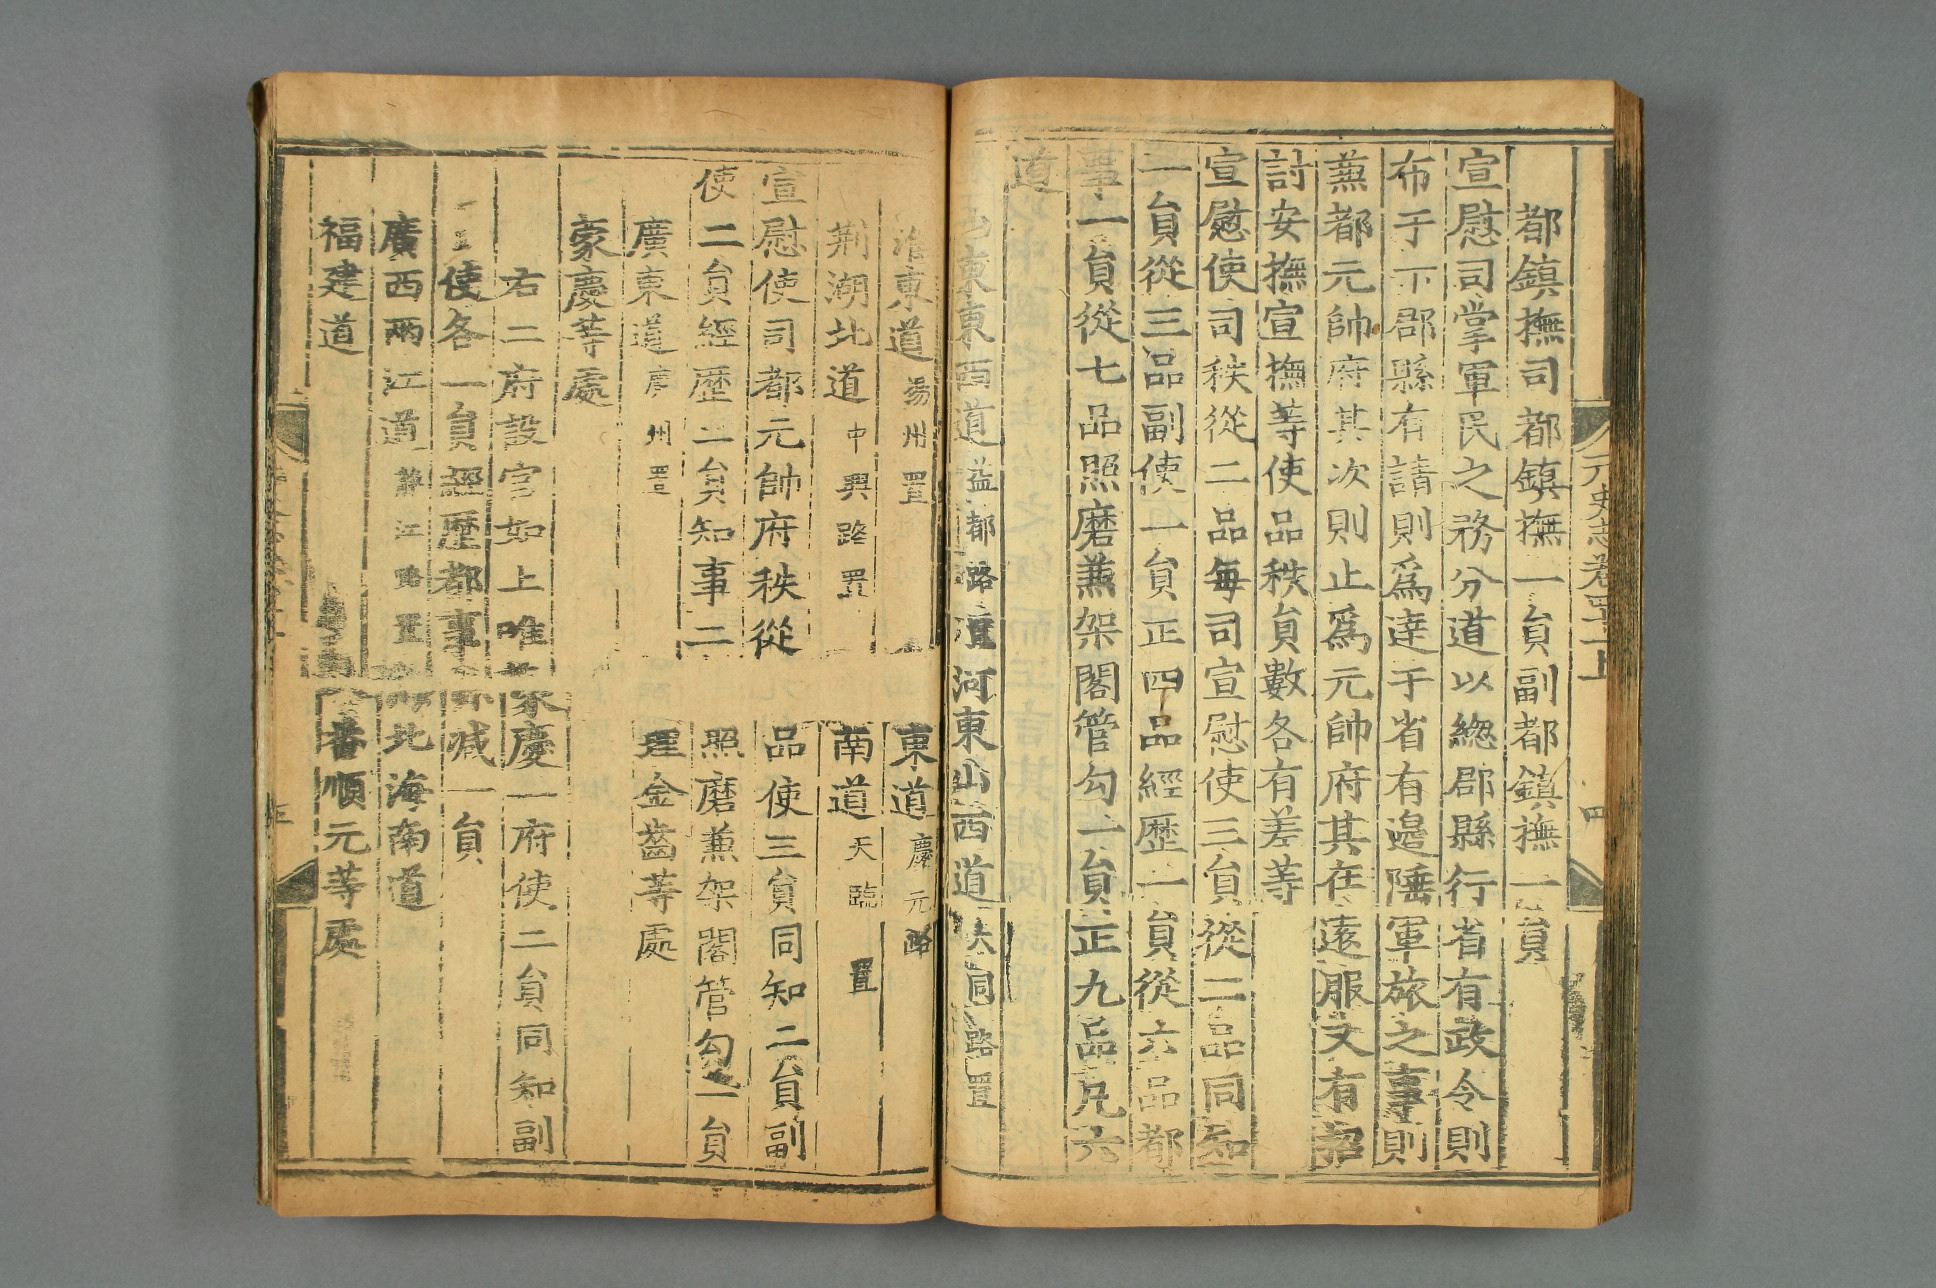 元史志卷四十一上
四
都鎮撫司都鎮撫一員副都鎮撫一員
宣慰司掌軍民之務分道以緫郡縣行省有政令則
布于下郡縣有請則爲達于省有邉陲軍旅之事則
蒹都元帥府其次則止爲元帥府其在逺服又有招
討安撫宣撫等使品秩員數各有差等
宣慰使司秩從二品每司宣慰使三員從二品同知
一員從三品副使一員正四品經歷一員從六品都
事一員從七品照磨蒹架閣管勾一員正九品凡六
道
山東東西道益都路置河東山西道大同路置
淮東道揚州置 東道慶元路置
荆湖北道中興路置 南道天臨置
宣慰使司都元帥府秩從 品使三員同知二員副
使二員經歷二員知事二 照磨蒹架閣管勾一員
廣東道廣州置 理金齒等處
蒙慶等處
右二府設官如上唯 蒙慶一府使二員同知副
使各一員經歷都事 减一員
廣西兩江道靜江路置 北海南道
福建道 番順元等處
五